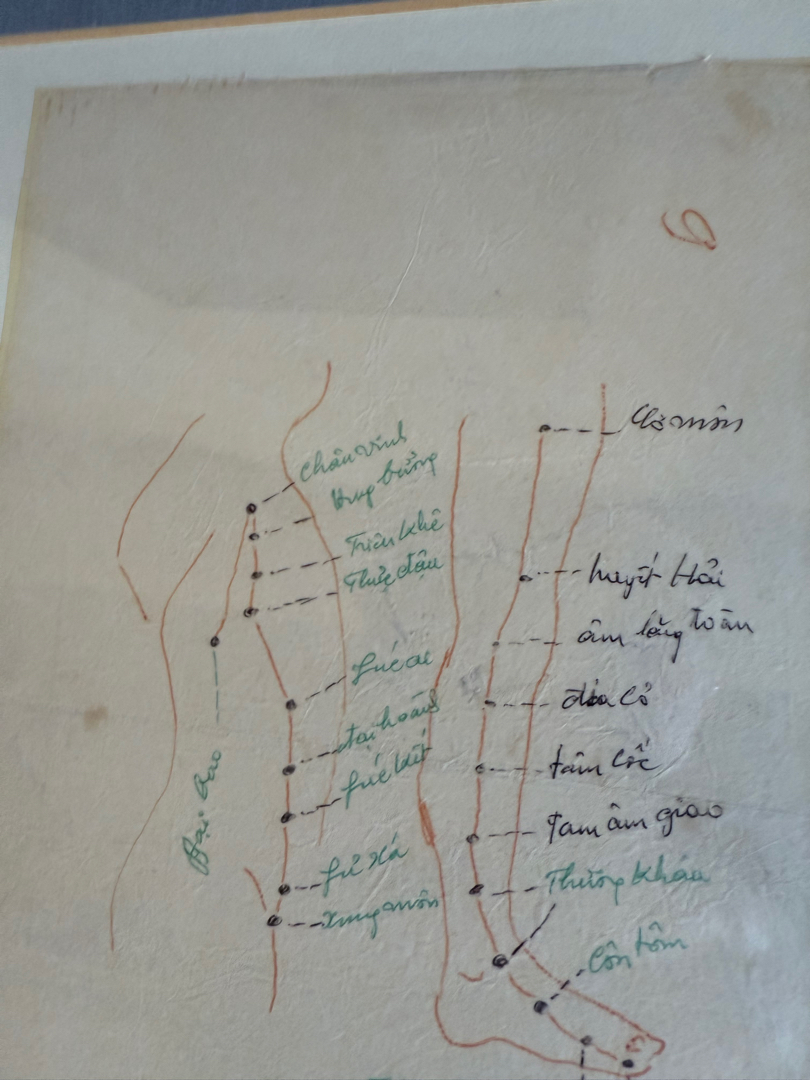 9
Châu Vinh
Hung
Thiên Khê
Thực đậu
Phúc ai
đại hoành
Phúc kết
Phủ xá
Xung môn
Đại bao
Cơ môn
huyết Hải
âm lăng toàn
địa Cơ
tâm Cốc
Tam âm giao
Thương Khâu
Côn tôm